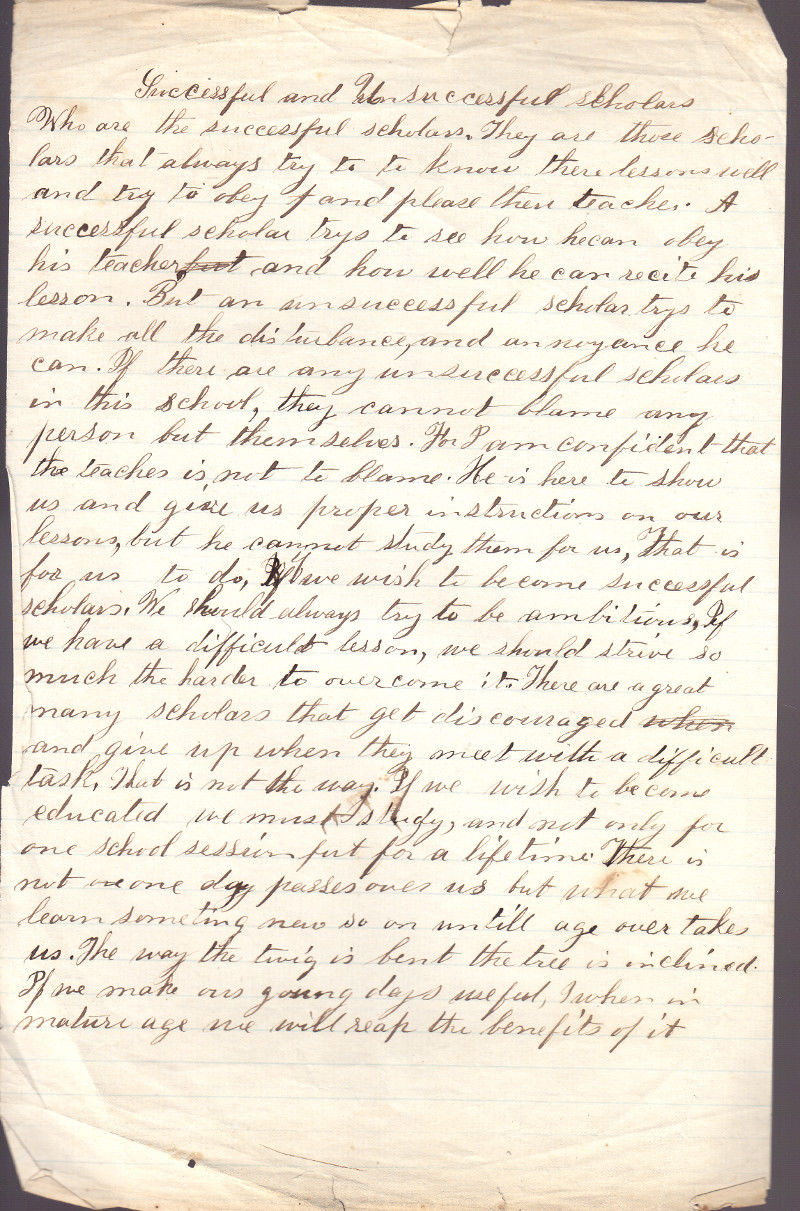 Successful and Unsuccessful scholars
Who are the successful scholars. They are those scho-
lars that always try to to know there lessons well
and try to obey and please their teacher. A
successful scholar trys to see how he can obey
his teacher, but and how well he can recite his
lesson. But an unsuccessful scholar trys to
make all the disturbance, and annoyance he
can. If there are any unsuccessful scholars
in this school, they cannot blame any
person but themselves. For I am confident that
the teacher is not to blame. He is here to show
us and give us proper instructions on our
lessons, but he cannot study them for us, That is
for us to do, If we wish to become successful
scholars. We should always try to be ambitious, If
we have a difficult lesson, we should strive so
much the harder to overcome it. There are a great
many scholars that get discouraged when
and give up when they meet with a difficult
task. That is not the way. If we wish to become
educated we must study, and not only for
one school session but for a lifetime. There is
not one one day passes over us but what we
learn someting new so on untill age over takes
us. The way the twig is bent the tree is inclined.
If we make our young days useful, when in
mature age we will reap the benefits of it